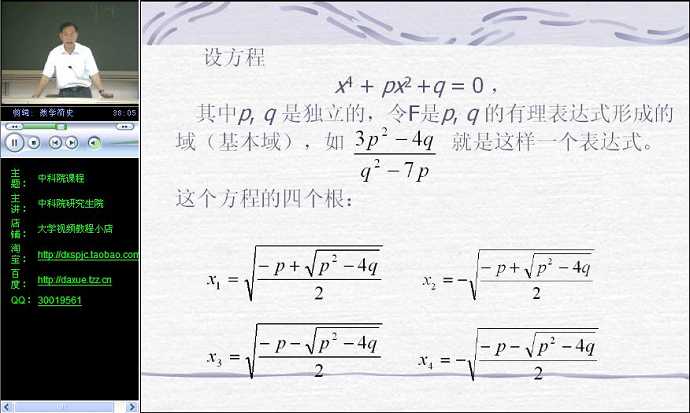 前线: 数学简史 38:05
主题: 中科院课程
主讲: 中科院研究生院
店铺: 大学视频教程小店
淘宝: http://dxspjc.taobao.com
百度: http://daxue.tzz.cn
QQ: 30019561
设方程
x⁴ + px² +q = 0 ,
其中p, q 是独立的，令F是p, q 的有理表达式形成的
域（基本域），如 (3p² − 4q)/(q² − 7p) 就是这样一个表达式。
这个方程的四个根：
x₁ = √((−p + √(p² − 4q))/2) x₂ = −√((−p + √(p² − 4q))/2)
x₃ = √((−p − √(p² − 4q))/2) x₄ = −√((−p − √(p² − 4q))/2)